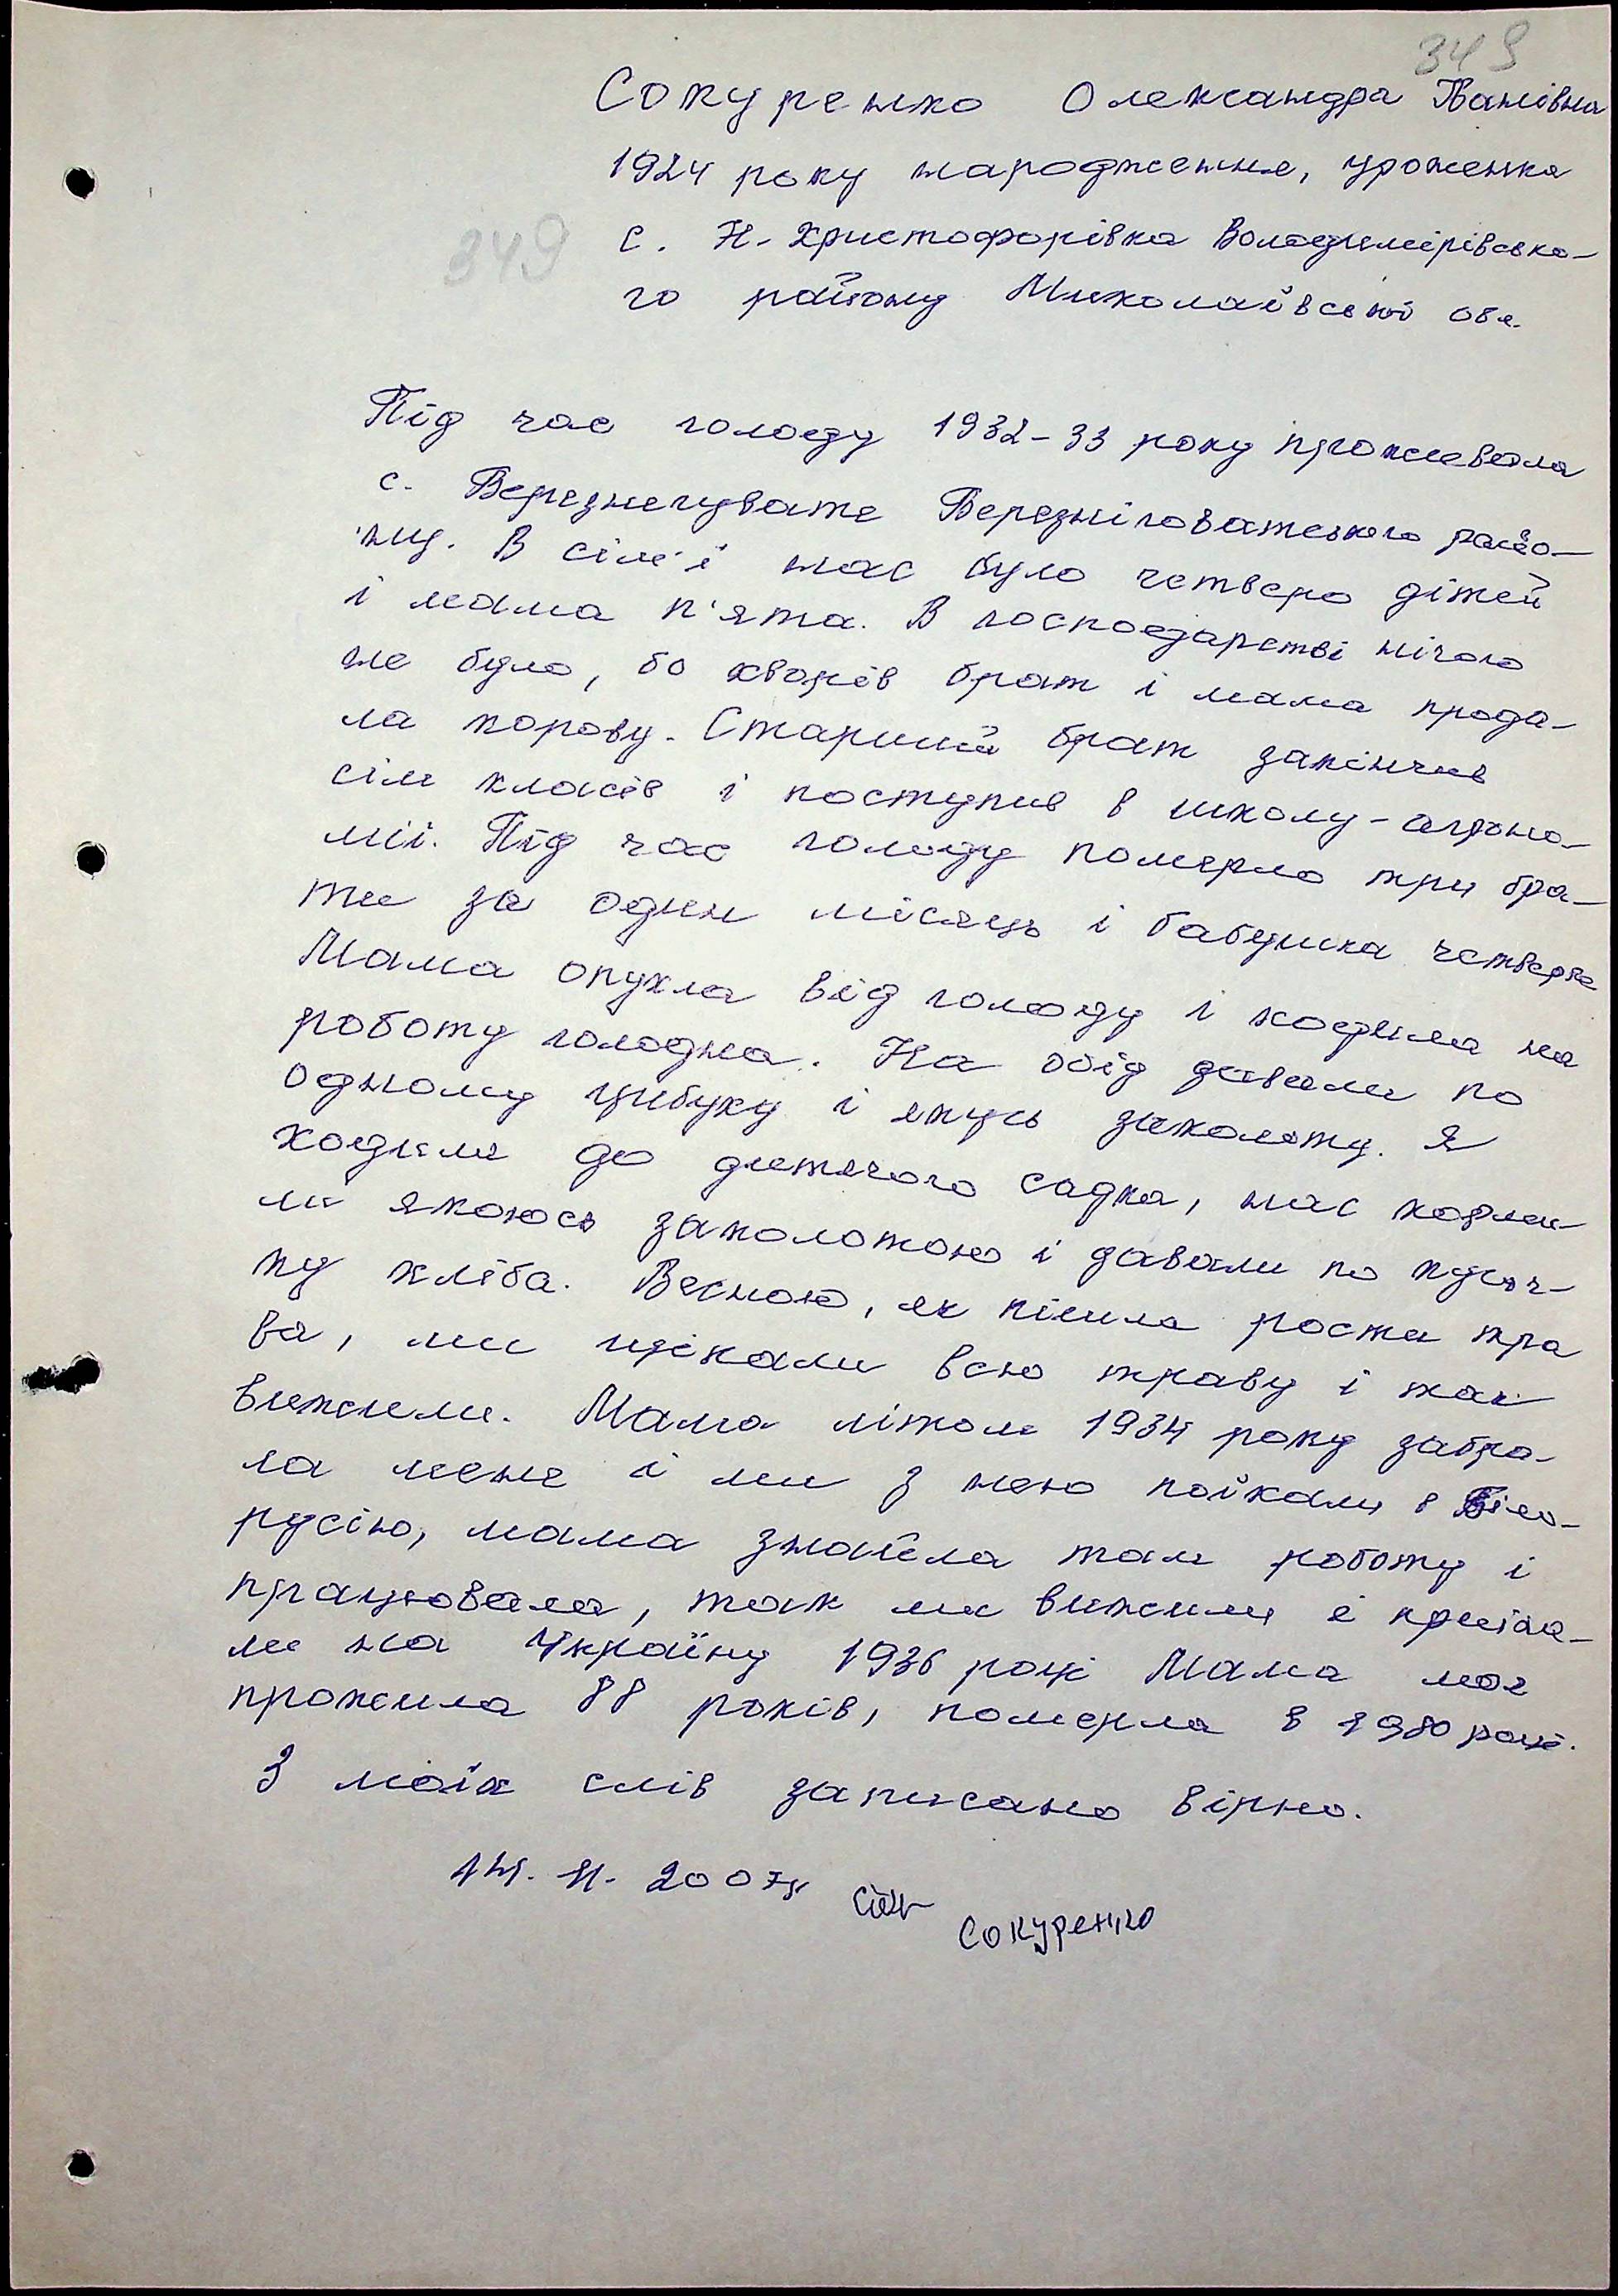 349
Сокуренко Олександра Іванівна
1924 року народження, уроженка
349
с. Н-Христофорівка Володимирівсько-
го району Миколаївської обл.
Під час голоду 1932-33 року проживала
с. Березнегувате Березніговатського райо-
ну. В сім'ї нас було четверо дітей
і мама п'ята. В господарстві нічого
не було, бо хворів брат і мама прода-
ла корову. Старший брат закінчив
сім класів і поступив в школу-агроно-
мії. Під час голоду померло три бра-
ти за один місяць і бабушка четверта
Мама опухла від голоду і ходила на
роботу голодна. На обід давали по
одному цибуку і якусь заколоту. Я
ходила до дитячого садка, нас корми
ли якоюсь заколотою і давали по кусоч-
ку хліба. Весною, як пішла рости тра
ва, ми щікали всю траву і так
вижили. Мама літом 1934 року забра-
ла мене і ми з нею поїхали в Біло-
русію, мама знайшла там роботу і
працювала, так ми вижили і приїха-
ли на Україну 1936 році Мама моя
прожила 88 років, померла в 1980 році.
З моїх слів записано вірно.
14. 11. 2007р
Сокуренко